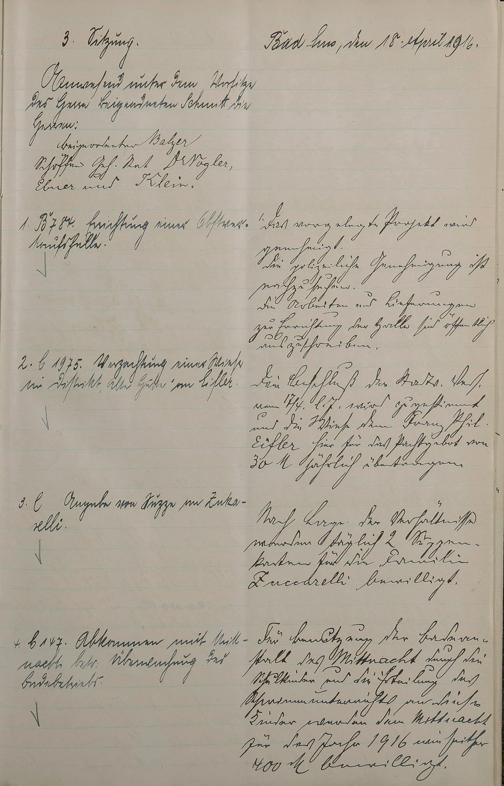 3. Sitzung.
Bad Ems, den 18. April 1916.
Anwesend unter dem Vorsitze
des Herrn Beigeordneten Schmitt die
Herren:
Beigeordneter Balzer
Schöffen Geh. Rat Dr Vogler,
Ebner und Klein.
1. B 784. Errichtung einer Obstver-
kaufshalle.
Das vorgelegte Projekt wird
genehmigt.
Die polizeiliche Genehmigung ist
nachzusuchen.
Die Arbeiten und Lieferungen
zu Errichtung der Halle sind öffentlich
auszuschreiben.
2. C 1975. Verpachtung einer Wiese
im Distrikt an Eifler.
Dem Beschluß der Stadtv. Vers.
vom 17/4. l. J. wird zugestimmt
und die Wiese dem Franz Phil.
Eifler hier für das Pachtgebot von
30 M jährlich übertragen.
3. C Angabe von Suppe an Zuka-
relli.
Nach Lage der Verhältnisse
werden täglich 2 Suppen-
karten für die Familie
Zuccarelli bewilligt.
4. C 147. Abkommen mit Mitt-
nacht betr. Überwachung des
Badebetriebs.
Für Benutzung der Badean-
stalt des Mittnacht durch die
Schulkinder und die Erteilung des
Schwimmunterrichts an diese
Kinder werden dem Mittnacht
für das Jahr 1916 wie seither
400 M bewilligt.